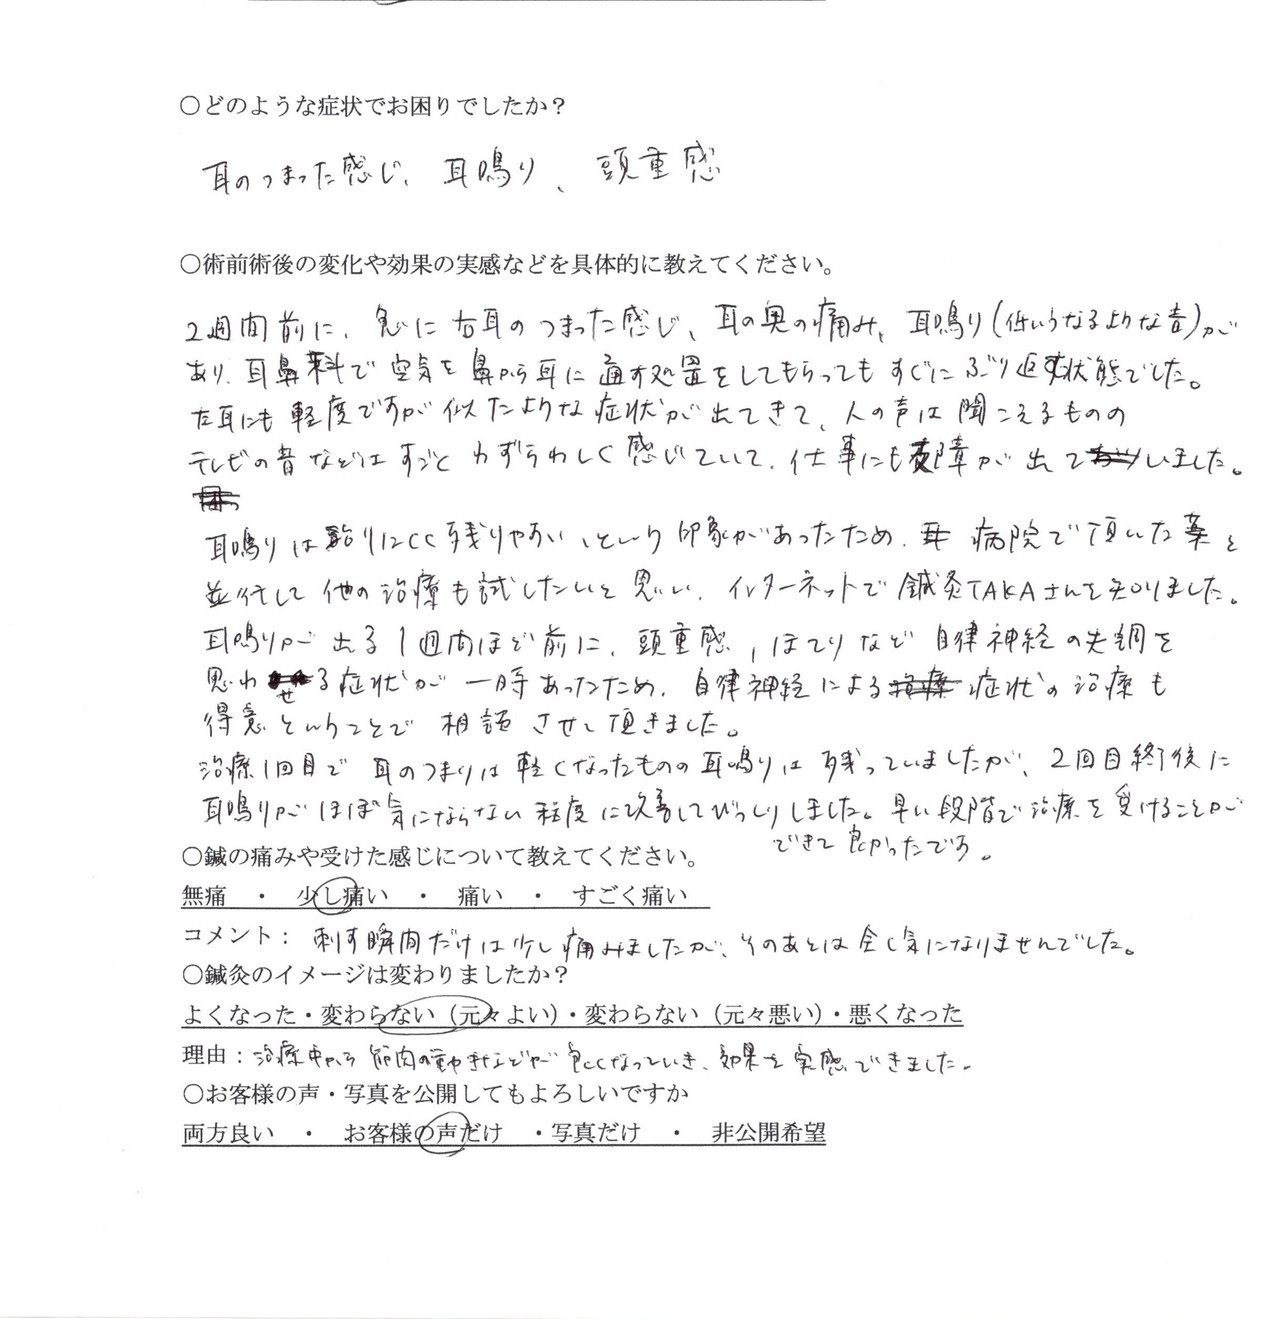 ○どのような症状でお困りでしたか？
耳のつまった感じ、耳鳴り、頭重感
○術前術後の変化や効果の実感などを具体的に教えてください。
2週間前に、急に右耳のつまった感じ、耳の奥の痛み、耳鳴り(低いうなるような音)が
あり、耳鼻科で空気を鼻から耳に通す処置をしてもらってもすぐにぶり返す状態でした。
左耳にも軽度ですが似たような症状が出てきて、人の声は聞こえるものの
テレビの音などはすごくわずらわしく感じていて、仕事にも支障が出ていました。
耳鳴りは治りにくく残りやすい、という印象があったため、病院で頂いた薬と
並行して他の治療も試したいと思い、インターネットで鍼灸TAKAさんを知りました。
耳鳴りが出る1週間ほど前に、頭重感，ほてりなど自律神経の失調を
思わせる症状が一時あったため、自律神経による症状の治療も
得意ということで相談させて頂きました。
治療1回目で耳のつまりは軽くなったものの耳鳴りは残っていましたが、2回目終了後に
耳鳴りがほぼ気にならない程度に改善してびっくりしました。早い段階で治療を受けることが
できて良かったです。
○鍼の痛みや受けた感じについて教えてください。
無痛　・　少し痛い　・　痛い　・　すごく痛い
コメント：刺す瞬間だけは少し痛みましたが、そのあとは全く気になりませんでした。
○鍼灸のイメージは変わりましたか？
よくなった・変わらない（元々よい）・変わらない（元々悪い）・悪くなった
理由：治療中から筋肉の動きなどが良くなっていき、効果を実感できました。
○お客様の声・写真を公開してもよろしいですか
両方良い　・　お客様の声だけ　・写真だけ　・　非公開希望